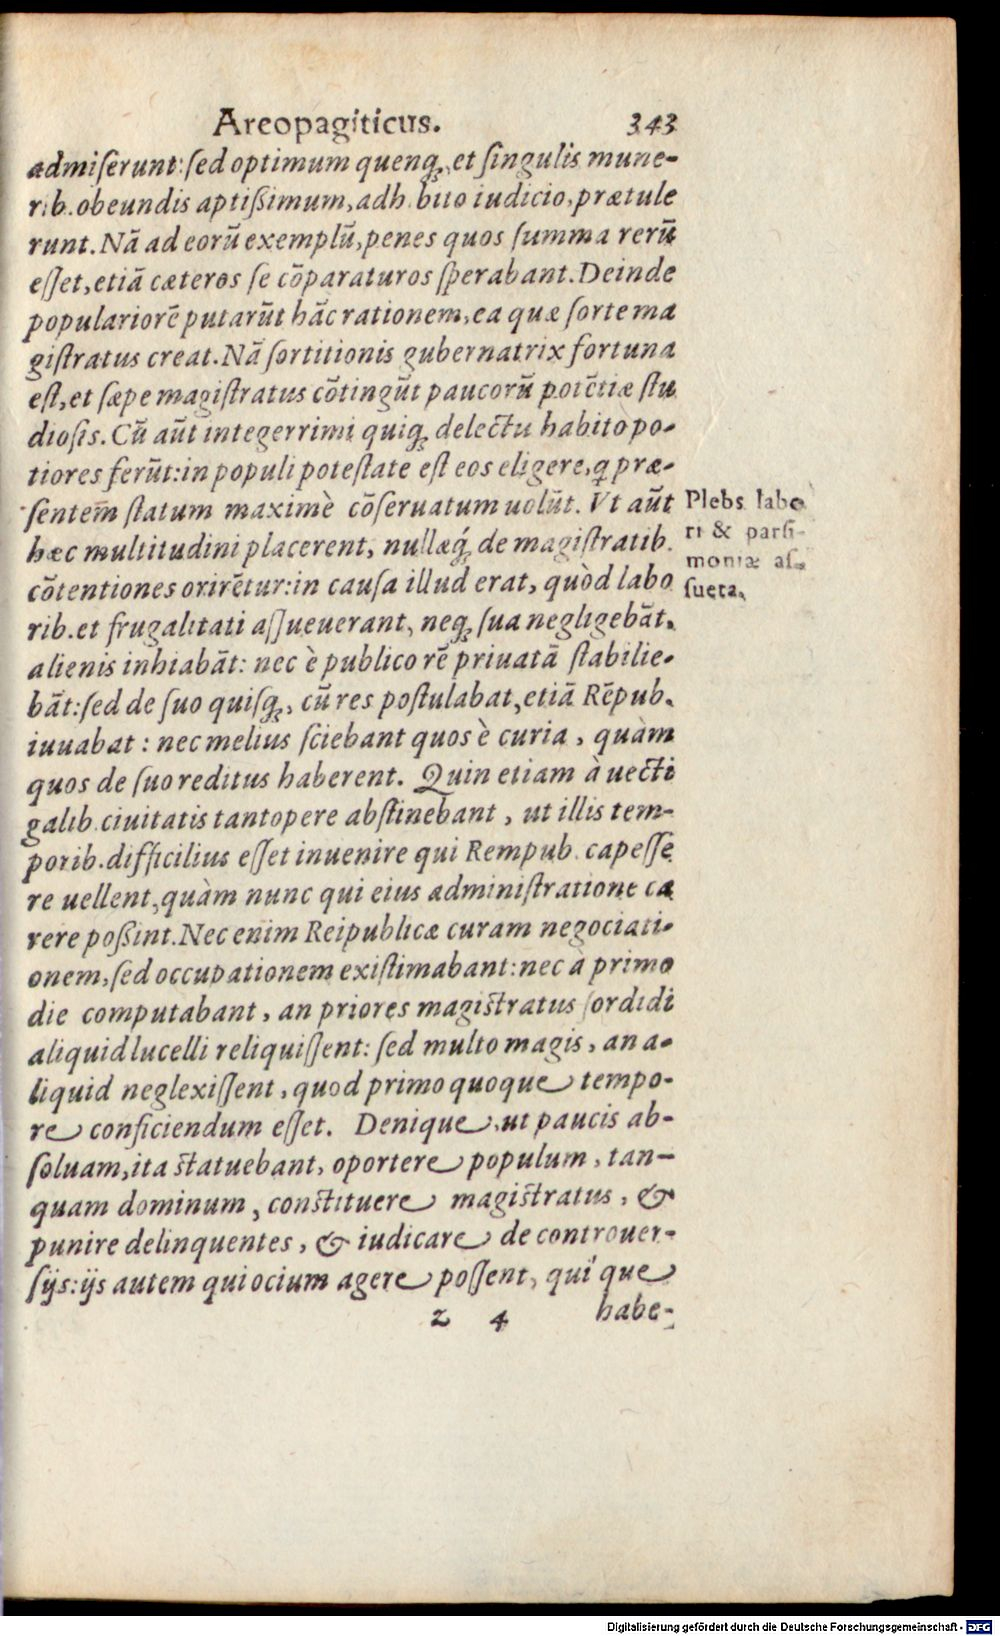 Areopagiticus. 343
admiserunt: sed optimum quenq́;, et singulis mune-
rib. obeundis aptißimum, adhibito iudicio, prætule
runt. Nã ad eorũ exemplũ, penes quos summa rerũ
esset, etiã cæteros se cõparaturos sperabant. Deinde
populariorẽ putarũt hãc rationem, ea quæ sorte ma
gistratus creat. Nã sortitionis gubernatrix fortuna
est, et sæpe magistratus cõtingũt paucorũ potẽtiæ stu
diosis. Cũ aũt integerrimi quiq; delectu habito po-
tiores ferũt: in populi potestate est eos eligere, q præ-
sentem̃ statum maximè cõseruatum uolũt. Vt aũt
hæc multitudini placerent, nullæq́; de magistratib.
cõtentiones orirẽtur: in causa illud erat, quòd labo
rib. et frugalitati assueuerant, neq; sua negligebãt,
alienis inhiabãt: nec è publico rẽ priuatã stabilie-
bãt: sed de suo quisq;, cũ res postulabat, etiã Rẽpub.
iuuabat: nec melius sciebant quos è curia, quàm
quos de suo reditus haberent. Quin etiam à uecti
galib. ciuitatis tantopere abstinebant, ut illis tem-
porib. difficilius esset inuenire qui Rempub. capesse
re uellent, quàm nunc qui eius administratione ca
rere poßint. Nec enim Reipublicæ curam negociati-
onem, sed occupationem existimabant: nec à primo
die computabant, an priores magistratus sordidi
aliquid lucelli reliquissent: sed multo magis, an a-
liquid neglexissent, quod primo quoque tempo-
re conficiendum esset. Denique, ut paucis ab-
soluam, ita statuebant, oportere populum, tan-
quam dominum, constituere magistratus, &
punire delinquentes, & iudicare de controuer-
sijs: ijs autem qui ocium agere possent, qui'que
z 4 habe-
Plebs labo
ri & parsi-
moniæ as-
sueta.
Digitalisierung gefördert durch die Deutsche Forschungsgemeinschaft - DFG